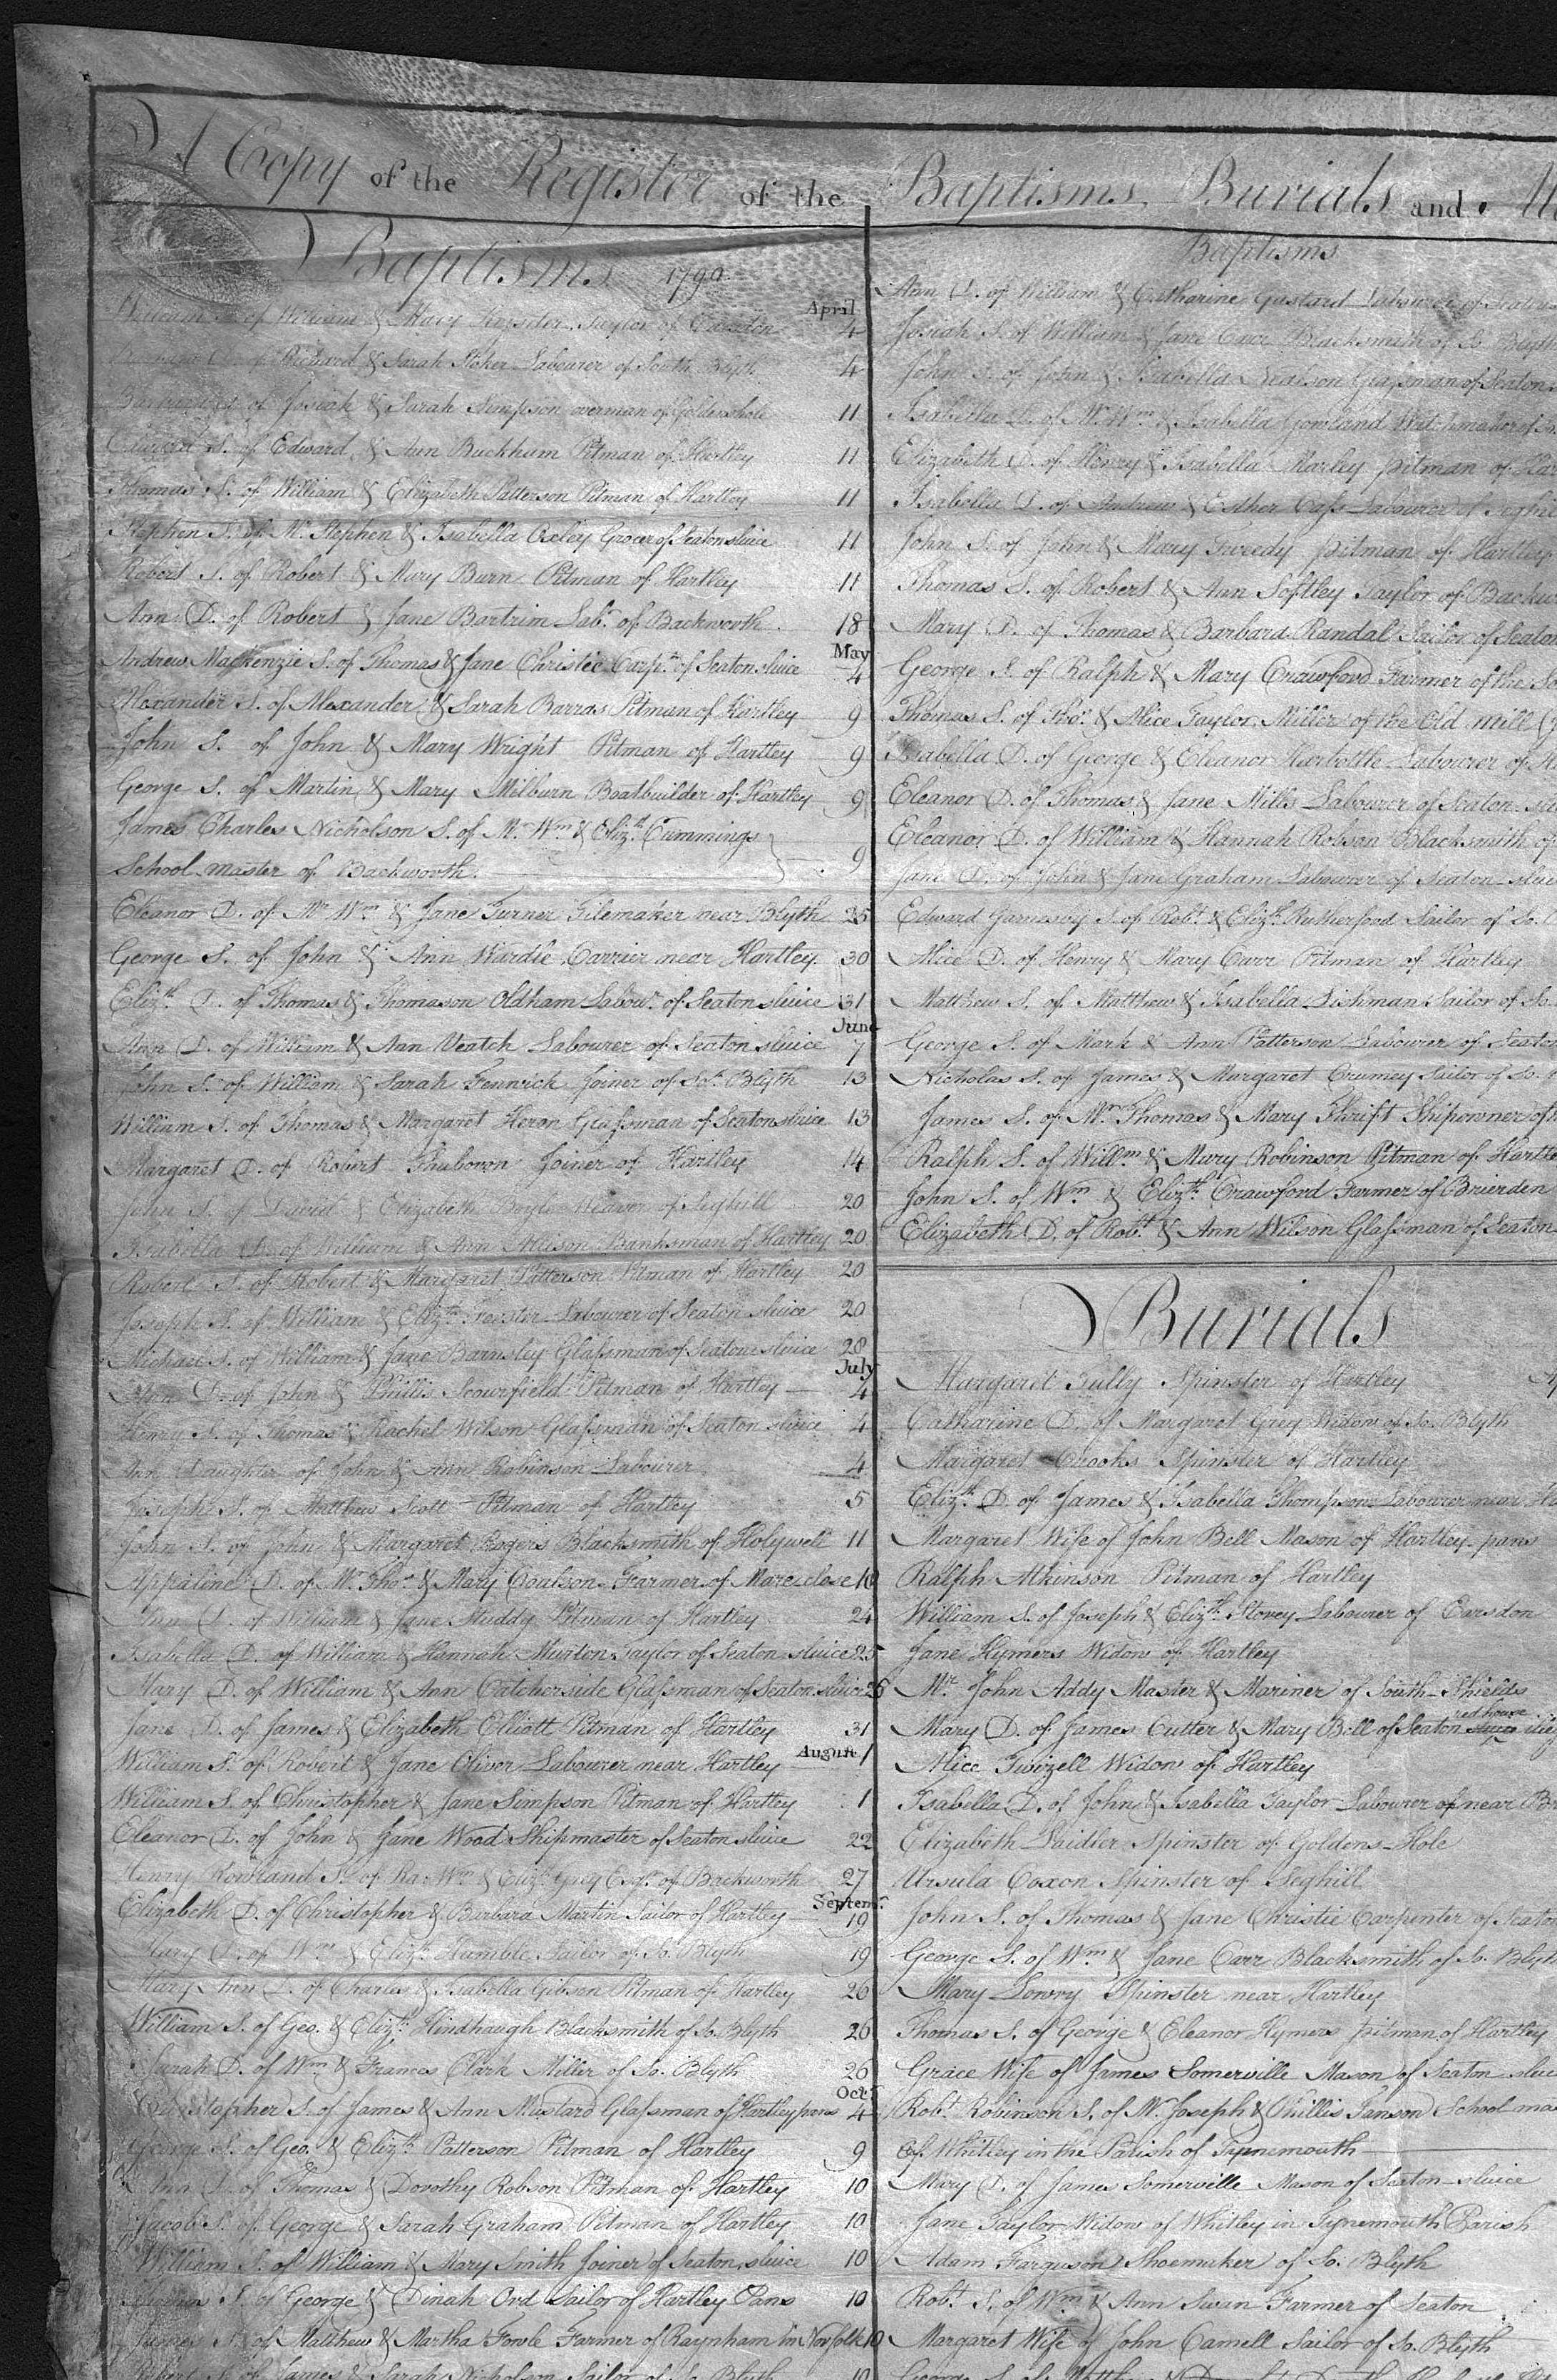 A Copy of the Register of the Baptisms Burials and
Baptisms 1790
April
William S. of William & Mary Taylor of 4
of Richard & Sarah Stoker Labourer of South Blyth 4
of Josiah & Sarah Simpson overman of Goldenshole 11
Edward S. of Edward & Ann Buckham Pitman of Hartley 11
Thomas S. of William & Elizabeth Patterson Pitman of Hartley 11
Stephen S. of Mr. Stephen & Isabella Oxley Grocer of Seaton sluice 11
Robert S. of Robert & Mary Burn Pitman of Hartley 11
Ann D. of Robert & Jane Bartrim Labr. of Backworth 18
May
Andrew MacKenzie S. of Thomas & Jane Christie Carptr. of Seaton sluice 4
Alexander S. of Alexander & Sarah Barras Pitman of Hartley 9
John S. of John & Mary Wright Pitman of Hartley 9
George S. of Martin & Mary Milburn Boatbuilder of Hartley 9
James Charles Nicholson S. of Mr. Wm. & Elizth. Cummings
School master of Backworth. 9
Eleanor D. of Mr. Wm. & Jane Turner Tilemaker near Blyth 25
George S. of John & Ann Wardle Carrier near Hartley 30
Elizth. D. of Thomas & Thomason Oldham Labour. of Seaton sluice 31
June
Ann D. of William & Ann Veatch Labourer of Seaton sluice 7
John S. of William & Sarah Fenwick Joiner of So. Blyth 13
William S. of Thomas & Margaret Heron Glassman of Seaton sluice 13
Margaret D. of Robert Thuboron Joiner of Hartley 14
John S. of David & Elizabeth Boyle Weaver of Seghill 20
Isabella D. of William & Ann Allison Banksman of Hartley 20
Robert S. of Robert & Margaret Patterson Pitman of Hartley 20
Joseph S. of William & Elizth. Forster Labourer of Seaton sluice 20
Michael S. of William & Jane Barnsley Glassman of Seaton sluice 28
July
Ann D. of John & Phillis Scourfield Pitman of Hartley 4
Henry S. of Thomas & Rachel Wilson Glassman of Seaton sluice 4
Ann Daughter of John & Ann Robinson Labourer 4
Joseph S. of Matthew Scott Pitman of Hartley 5
John S. of John & Margaret Rogers Blacksmith of Holywell 11
Appaline D. of Mr. Thos. & Mary Coulson Farmer of Mare close
Ann D. of William & Jane Muddy Pitman of Hartley 24
Isabella D. of William & Hannah Murton Taylor of Seaton sluice 25
Mary D. of William & Ann Catcherside Glassman of Seaton sluice 26
Jane D. of James & Elizabeth Elliott Pitman of Hartley 31
William S. of Robert & Jane Oliver Labourer near Hartley August 1
William S. of Christopher & Jane Simpson Pitman of Hartley 1
Eleanor D. of John & Jane Wood Shipmaster of Seaton sluice 22
Henry Rowland S. of Ra: Wm. & Elizth. Grey Esqr. of Backworth 27
Septemr.
Elizabeth D. of Christopher & Barbara Martin Sailor of Hartley 19
Mary D. of Wm. & Elizth. Humble Sailor of So. Blyth 19
Mary Ann D. of Charles & Isabella Gibson Pitman of Hartley 26
William S. of Geo. & Elizth. Hindhaugh Blacksmith of So. Blyth 26
Sarah D. of Wm. & Frances Clark Miller of So. Blyth 26
Octr.
Christopher S. of James & Ann Mustard Glassman of Hartley pans 4
George S. of Geo. & Elizth. Patterson Pitman of Hartley 9
Ann D. of Thomas & Dorothy Robson Pitman of Hartley 10
Jacob S. of George & Sarah Graham Pitman of Hartley 10
William S. of William & Mary Smith Joiner of Seaton sluice 10
S. of George & Dinah Ord Sailor of Hartley Pans 10
James S. of Matthew & Martha Fowle Farmer of Raynham in Norfolk 10
Robert S. of James & Sarah Nicholson Sailor of So. Blyth 10
Baptisms
Ann D. of William & Catharine Gustard Labourer of Seaton
Josiah S. of William & Jane Carr Blacksmith of So. Blyth
John S. of John & Isabella Nealson Glassman of Seaton
Isabella D. of Mr. Wm. & Isabella Gowland Watchmaker of So.
Elizabeth D. of Henry & Isabella Marley pitman of Har
Isabella D. of Andrew & Esther Cass Labourer of Seghil
John S. of John & Mary Tweedy pitman of Hartley
Thomas S. of Robert & Ann Softley Taylor of Backw
Mary D. of Thomas & Barbara Randal Sailor of Seaton
George S. of Ralph & Mary Crawford Farmer of the
Thomas S. of Thos. & Alice Taylor Miller of the Old mill
Isabella D. of George & Eleanor Harbottle Labourer of
Eleanor D. of Thomas & Jane Mills Labourer of Seaton
Eleanor D. of William & Hannah Robson Blacksmith of
Jane D. of John & Jane Graham Labourer of Seaton sluic
Edward Garnesvy S. of Robt. & Elizth. Rutherford Sailor of So.
Alice D. of Henry & Mary Carr Pitman of Hartley
Matthew S. of Matthew & Isabella Dishman Sailor of So.
George S. of Mark & Ann Patterson Labourer of Seaton
Nicholas S. of James & Margaret Crumey Sailor of So.
James S. of Mr. Thomas & Mary Thrift Shipowner of
Ralph S. of Willm. & Mary Robinson Pitman of Hartle
John S. of Wm. & Elizth. Crawford Farmer of Brierden
Elizabeth D. of Robt. & Ann Wilson Glassman of Seaton
Burials
Margaret Tully Spinster of Hartley
Catharine D. of Margaret Grey Widow of So. Blyth
Margaret Crooks Spinster of Hartley
Elizth. D. of James & Isabella Thompson Labourer near Ha
Margaret Wife of John Bell Mason of Hartley pans
Ralph Atkinson Pitman of Hartley
William S. of Joseph & Elizth. Storey Labourer of Earsdon
Jane Hymers Widow of Hartley
Mr. John Addy Master & Mariner of South-Shields
red house
Mary D. of James Cutter & Mary Bell of Seaton
Alice Twizell Widow of Hartley
Isabella D. of John & Isabella Taylor Labourer of near
Elizabeth Laidler Spinster of Goldens-Hole
Ursula Coxon Spinster of Seghill
John S. of Thomas & Jane Christie Carpenter of Seaton
George S. of Wm. & Jane Carr Blacksmith of So. Blyth
Mary Lowry Spinster near Hartley
Thomas S. of George & Eleanor Hymers pitman of Hartley
Grace Wife of James Somerville Mason of Seaton sluic
Robt. Robinson S. of Mr. Joseph & Phillis Janson School mas
of Whitley in the Parish of Tynemouth
Mary D. of James Somerville Mason of Seaton-sluice
Jane Taylor Widow of Whitley in Tynemouth Parish
Adam Farguson Shoemaker of So. Blyth
Robt. S. of Wm. & Ann Swan Farmer of Seaton
Margaret Wife of John Camell Sailor of So. Blyth